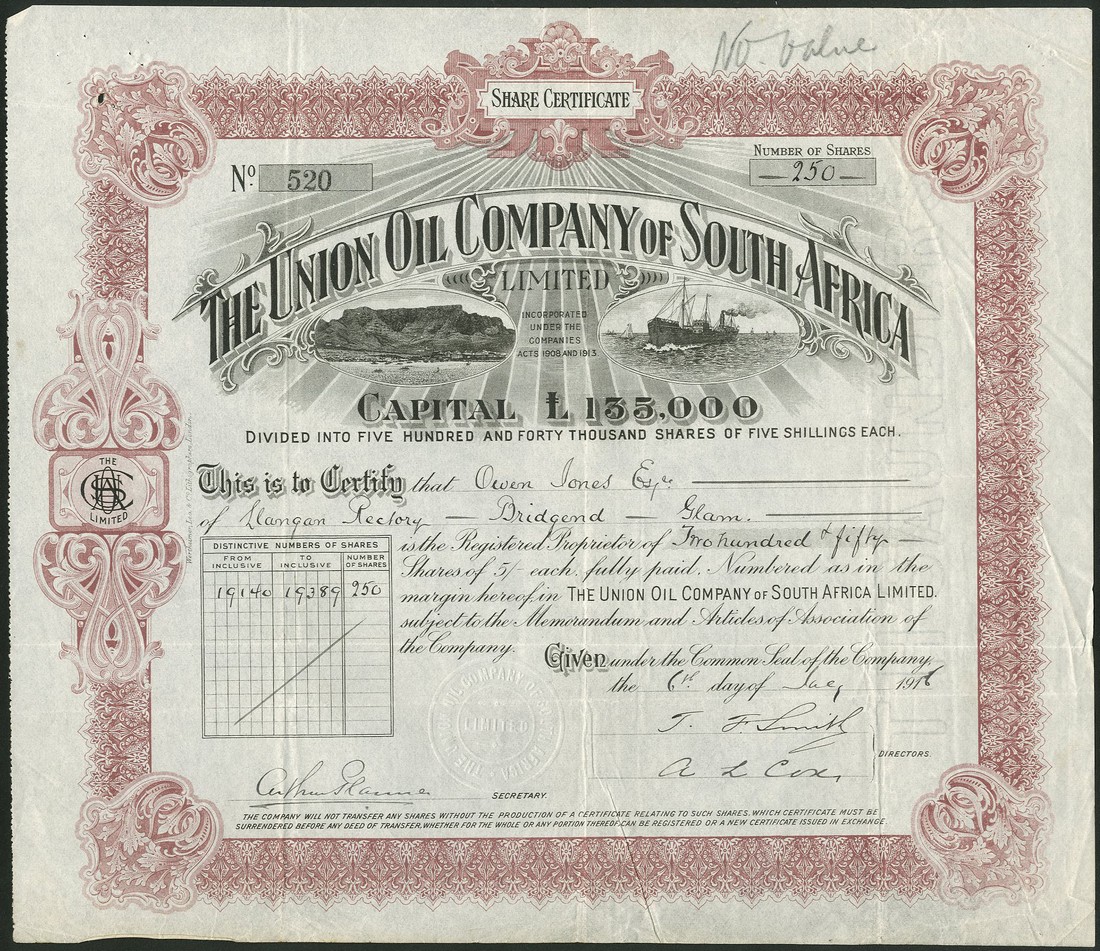 No. Value
SHARE CERTIFICATE
NUMBER OF SHARES
No. 520
—250—
THE UNION OIL COMPANY OF SOUTH AFRICA
LIMITED
INCORPORATED
UNDER THE
COMPANIES
ACTS 1908 AND 1913
CAPITAL £135,000
DIVIDED INTO FIVE HUNDRED AND FORTY THOUSAND SHARES OF FIVE SHILLINGS EACH.
This is to Certify that Owen Jones Esqre.
of Llangan Rectory — Bridgend — Glam.
THE
LIMITED
DISTINCTIVE NUMBERS OF SHARES
FROM INCLUSIVE TO INCLUSIVE NUMBER OF SHARES
19140 19389 250
is the Registered Proprietor of Two hundred & fifty —
Shares of 5/- each, fully paid. Numbered as in the
margin hereof, in THE UNION OIL COMPANY OF SOUTH AFRICA LIMITED.
subject to the Memorandum and Articles of Association of
the Company.
Given under the Common Seal of the Company,
the 6th day of 1916
THE UNION OIL COMPANY OF SOUTH AFRICA
LIMITED
T. F. Smith
A L Cox,
DIRECTORS.
Arthur
SECRETARY.
THE COMPANY WILL NOT TRANSFER ANY SHARES WITHOUT THE PRODUCTION OF A CERTIFICATE RELATING TO SUCH SHARES, WHICH CERTIFICATE MUST BE
SURRENDERED BEFORE ANY DEED OF TRANSFER, WHETHER FOR THE WHOLE OR ANY PORTION THEREOF, CAN BE REGISTERED OR A NEW CERTIFICATE ISSUED IN EXCHANGE.